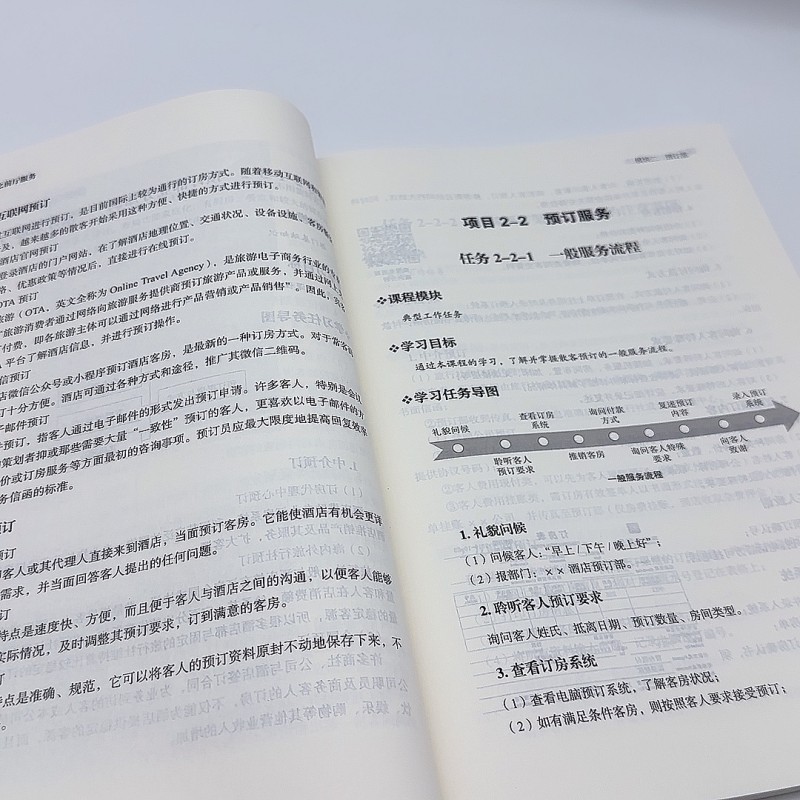 前厅服务
互联网预订
互联网进行预订，是目前国际上较为通行的订房方式。随着移动互联网
及，越来越多的散客开始采用这种方便、快捷的方式进行预订。
酒店官网预订
登录酒店的门户网站，在了解酒店地理位置、交通状况、设备设施、客房
格、优惠政策等情况后，直接进行在线预订。
OTA 预订
旅游（OTA，英文全称为 Online Travel Agency），是旅游电子商务行业的
"旅游消费者通过网络向旅游服务提供商预订旅游产品或服务，并通过网上
付费，即各旅游主体可以通过网络进行产品营销或产品销售"。因此，
平台了解酒店信息，并进行预订操作。
微信预订
店微信公众号或小程序预订酒店客房，是最新的一种订房方式。对于常客
了十分方便。酒店可通过各种方式和途径，推广其微信二维码。
子邮件预订
件预订，指客人通过电子邮件的形式发出预订申请。许多客人，特别是会议
策划者抑或那些需要大量"一致性"预订的客人，更喜欢以电子邮件的
价或订房服务等方面最初的咨询事项。预订员应最大限度地提高回复效率
务信函的标准。
预订
预订
和客人或其代理人直接来到酒店，当面预订客房。它能使酒店有机会更详
需求，并当面回答客人提出的任何问题。
订
特点是速度快、方便，而且便于客人与酒店之间的沟通，以便客人能够
实际情况，及时调整其预订要求，订到满意的客房。
订
特点是准确、规范，它可以将客人的预订资料原封不动地保存下来，不
项目 2-2 预订服务
任务 2-2-1 一般服务流程
❖课程模块
典型工作任务
❖学习目标
通过本课程的学习，了解并掌握散客预订的一般服务流程。
❖学习任务导图
礼貌问候
查看订房系统
询问付款方式
复述预订内容
录入预订系统
聆听客人预订要求
推销客房
询问客人特殊要求
向客人致谢
一般服务流程
1. 礼貌问候
（1）问候客人："早上/下午/晚上好"；
（2）报部门：××酒店预订部。
2. 聆听客人预订要求
询问客人姓氏、抵离日期、预订数量、房间类型。
3. 查看订房系统
（1）查看电脑预订系统，了解客房状况；
（2）如有满足条件客房，则按照客人要求接受预订；